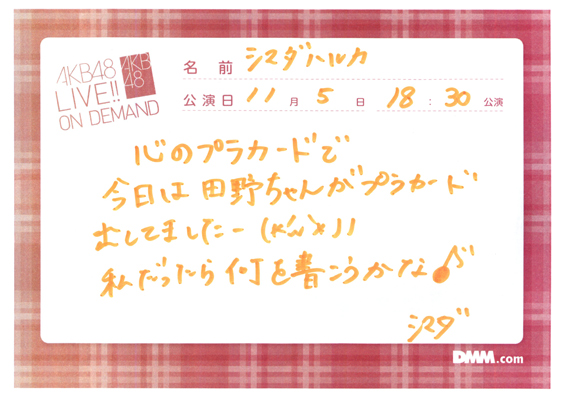 AKB48
LIVE!!
ON DEMAND
AKB
48
名前 シマダハルカ
公演日 11月5日 18:30公演
心のプラカードで
今日は田野ちゃんがプラカード
出してましたー
私だったら何を書こうかな♪
シマダ
DMM.com